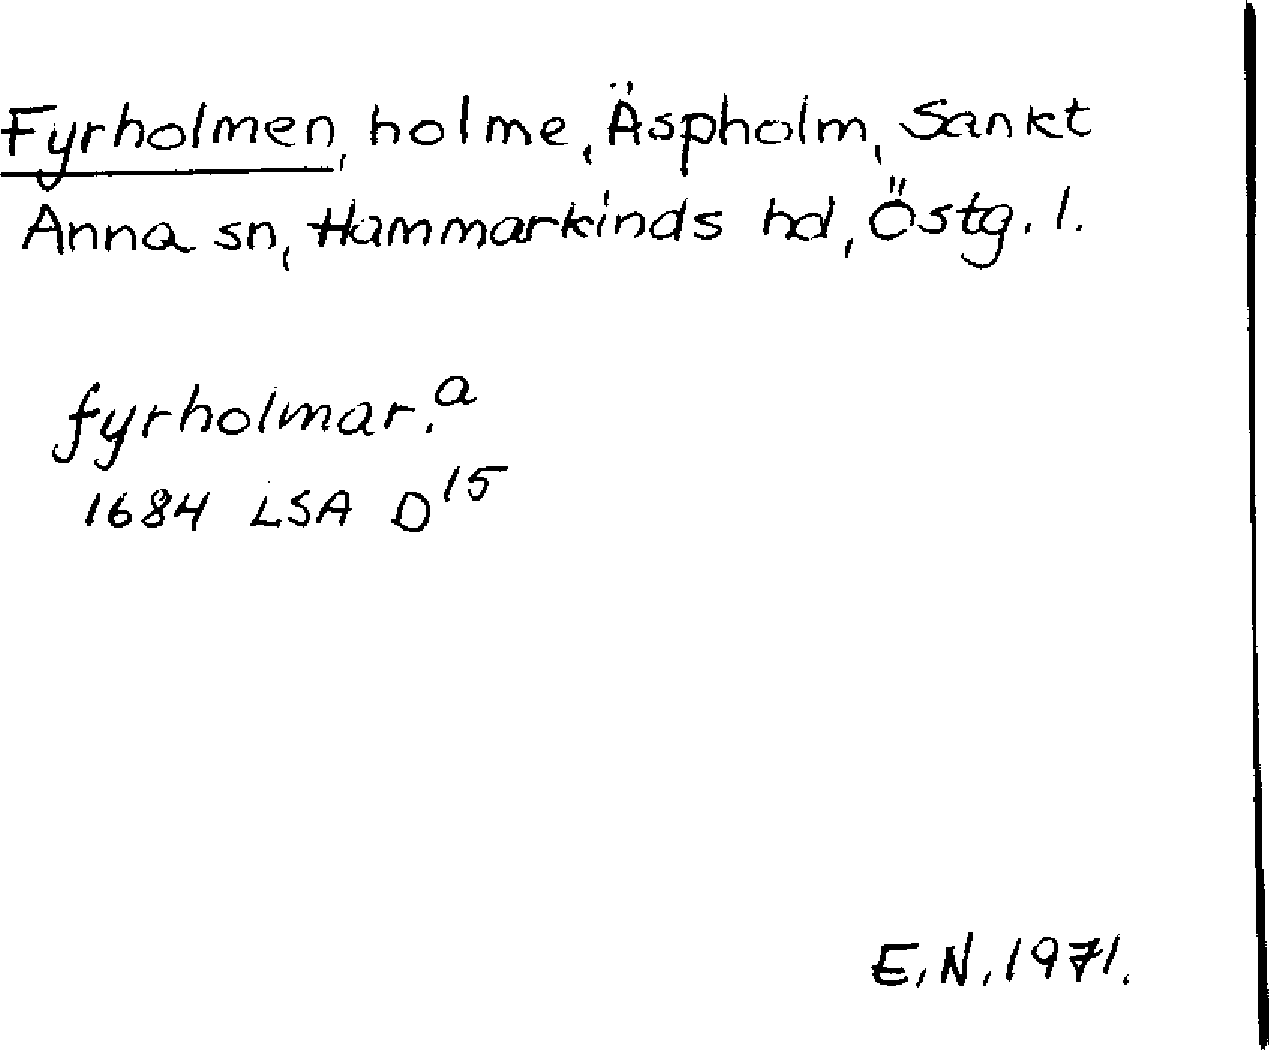 Fyrholmen, holme, Äspholm, Sankt
Anna sn, Hammarkinds hd, Östg. l.
fyrholmar.a
1684 LSA D15
E.N. 1971.